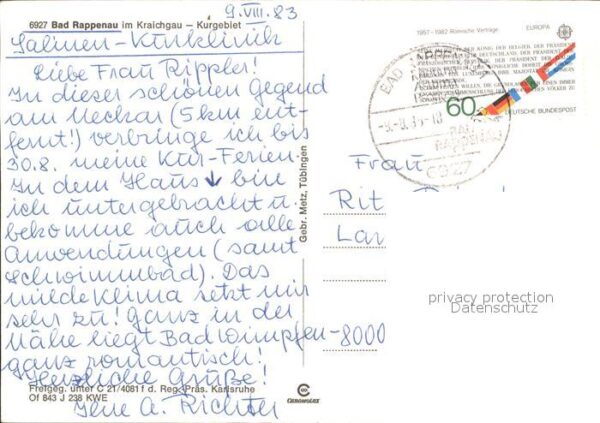 9.VIII.83
6927 Bad Rappenau im Kraichgau – Kurgebiet
Salinen-Kurklinik
Liebe Frau Rippler!
In dieser schönen Gegend
am Neckar (5 km ent-
fernt!) verbringe ich bis
30.8. meine Kur-Ferien.
In dem Haus ↓ bin
ich untergebracht u.
bekomme auch alle
Anwendungen (samt
Schwimmbad). Das
milde Klima setzt mir
sehr zu! Ganz in der
Nähe liegt Bad Wimpfen -
ganz romantisch!
Herzliche Grüße!
Ihre A. Richter
Freigeg. unter C 21/4081 f d. Reg. Präs. Karlsruhe
Of 843 J 238 KWE
Gebr. Metz, Tübingen
CHROMOLUX
1957-1982 Römische Verträge
EUROPA
60
DEUTSCHE BUNDESPOST
BAD RAPPENAU
6927
Frau
Rit
Lar
8000
privacy protection
Datenschutz